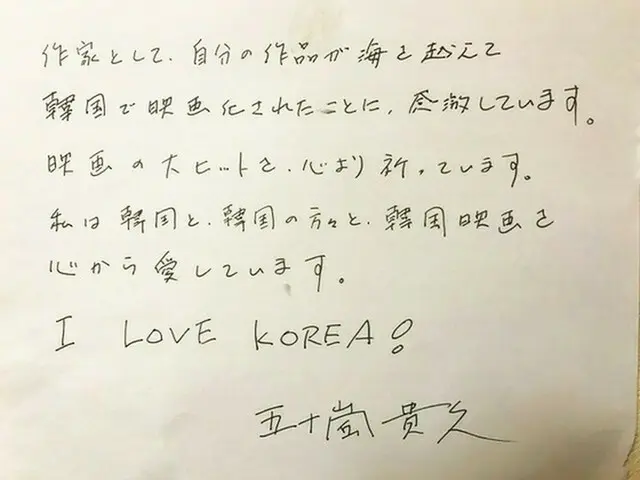 作家として、自分の作品が海を越えて
韓国で映画化されたことに、感激しています。
映画の大ヒットを、心より祈っています。
私は韓国と、韓国の方々と、韓国映画を
心から愛しています。
I LOVE KOREA!
五十嵐貴久